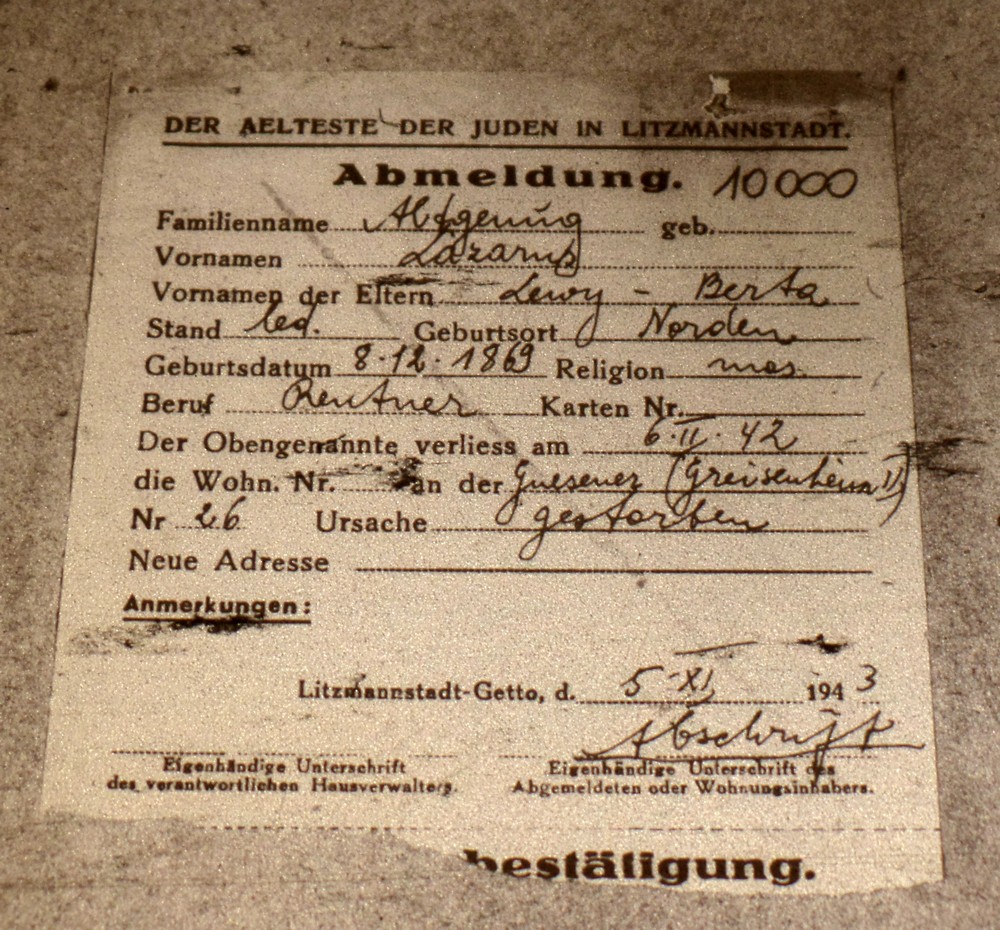 DER AELTESTE DER JUDEN IN LITZMANNSTADT.
Abmeldung. 10000
Familienname geb.
Vornamen Lazarus
Vornamen der Eltern Lewy - Berta
Stand led. Geburtsort Norden
Geburtsdatum 8.12.1869 Religion mos.
Beruf Rentner Karten Nr.
Der Obengenannte verliess am 6.II.42
die Wohn. Nr. an der Gnesener (Greisenheim II)
Nr 26 Ursache gestorben
Neue Adresse
Anmerkungen:
Litzmannstadt-Getto, d. 5-XI 1943
Abschrift
Eigenhändige Unterschrift des verantwortlichen Hausverwalters.
Eigenhändige Unterschrift des Abgemeldeten oder Wohnungsinhabers.
bestätigung.